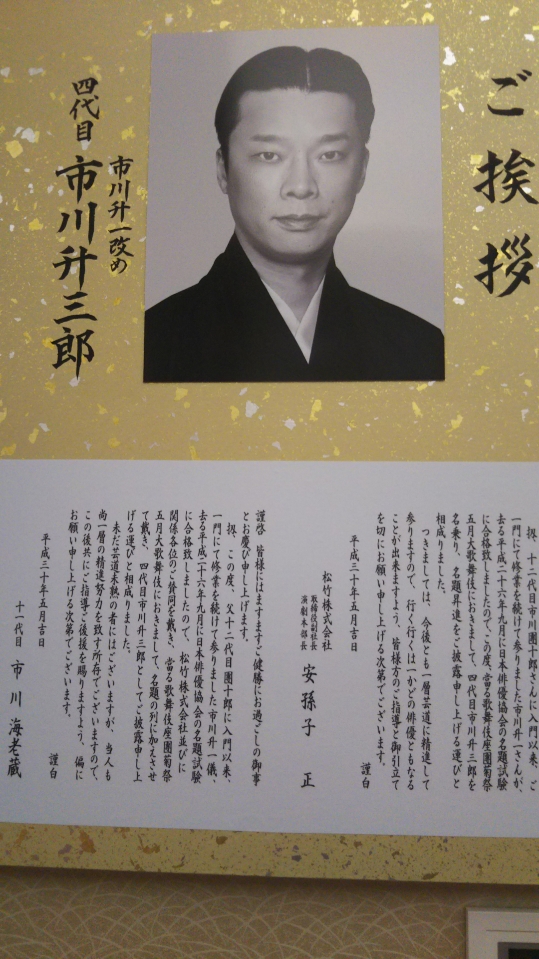 ご挨拶
市川升一改め
四代目 市川升三郎
扨、十二代目市川團十郎さんに入門以来、ご
一門にて修業を続けて参りました市川升一さんが、
去る平成二十六年九月に日本俳優協会の名題試験
に合格致しましたのでこの度、當る歌舞伎座團菊祭
五月大歌舞伎におきまして、四代目市川升三郎を
名乗り、名題昇進をご披露申し上げる運びと
相成りました。
つきましては、今後とも一層芸道に精進して
参りますので、行く行くは一かどの俳優ともなる
ことが出来ますよう、皆様方のご指導と御引立て
を切にお願い申し上げる次第でございます。
謹白
平成三十年五月吉日
松竹株式会社
取締役副社長
演劇本部長
安孫子 正
謹啓 皆様にはますますご健勝にお過ごしの御事
とお慶び申し上げます。
扨、この度、父十二代目團十郎に入門以来、
一門にて修業を続けて参りました市川升一儀、
去る平成二十六年九月に日本俳優協会の名題試験
に合格致しましたので、松竹株式会社並びに
関係各位のご賛同を戴き、當る歌舞伎座團菊祭
五月大歌舞伎におきまして、名題の列に加えさせ
て戴き、四代目市川升三郎としてご披露申し上
げる運びと相成りました。
未だ芸道未熟の者にはございますが、当人も
尚一層の精進努力を致す所存でございますので、
この後共にご指導ご後援を賜りますよう、偏に
お願い申し上げる次第でございます。
謹白
平成三十年五月吉日
十一代目 市川海老蔵